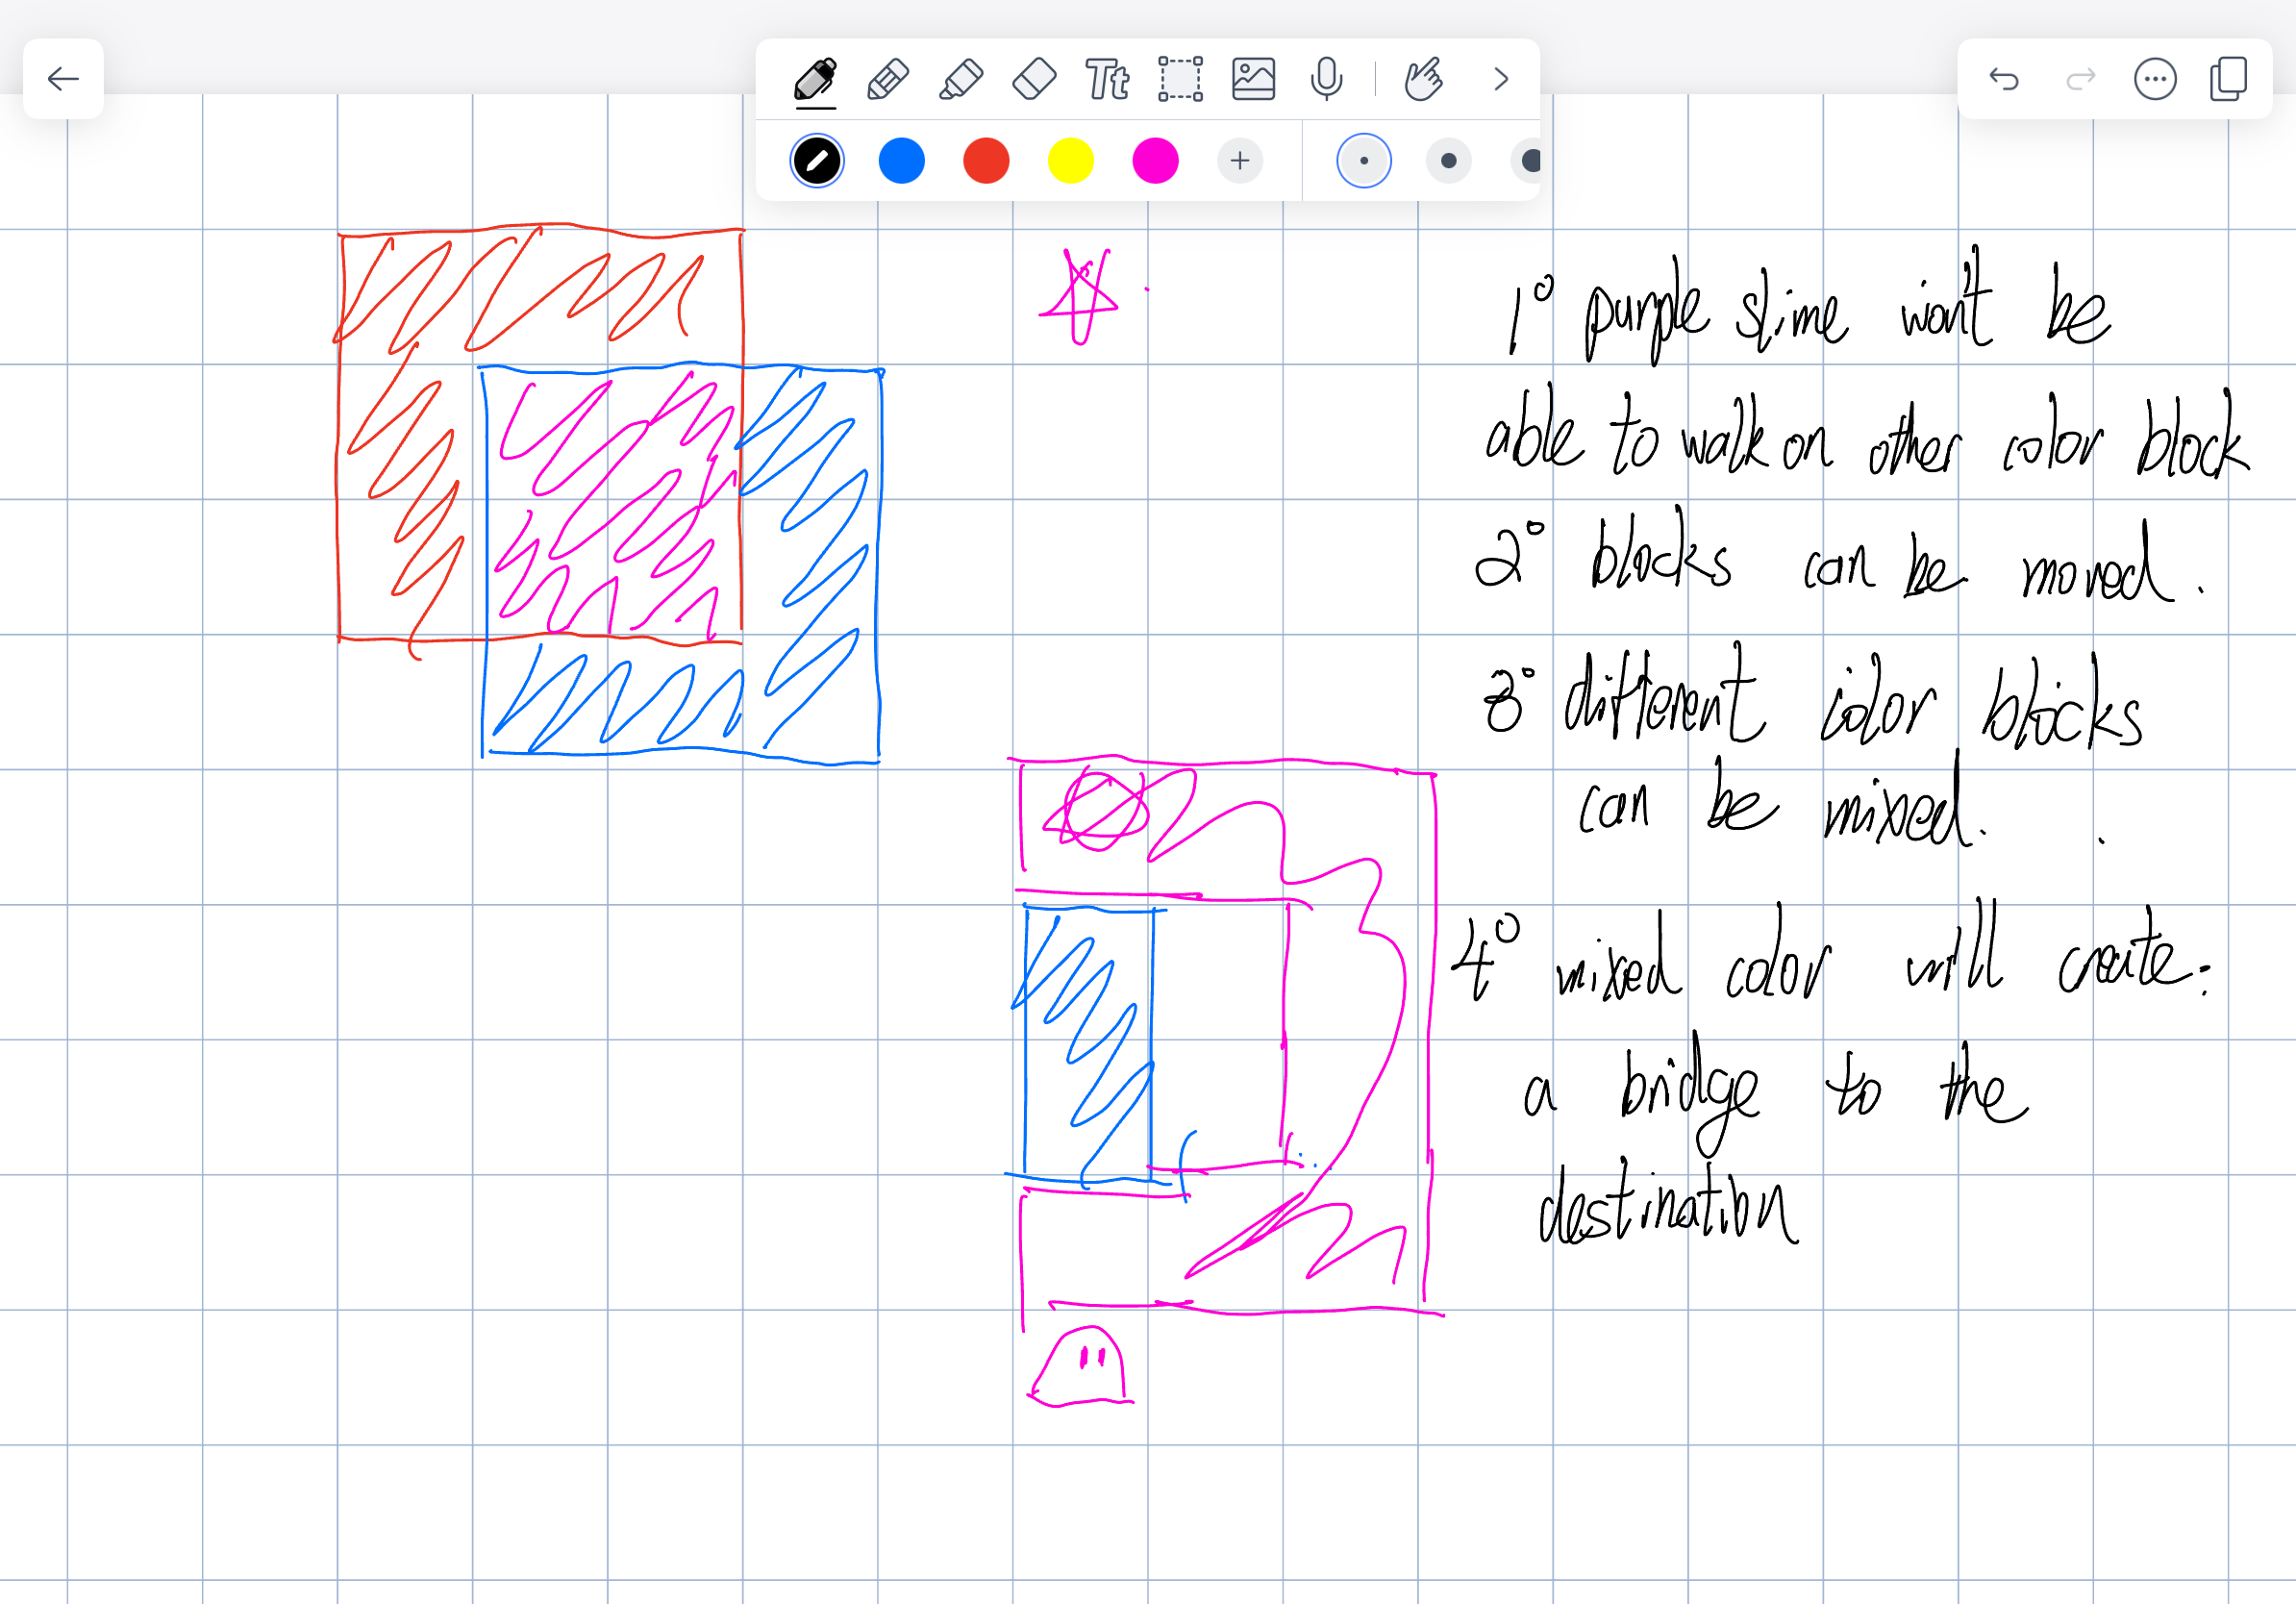 Tt
1° purple slime won't be
able to walk on other color block
2° blocks can be moved.
3° different color blocks
can be mixed.
4° mixed color will create:
a bridge to the
destination